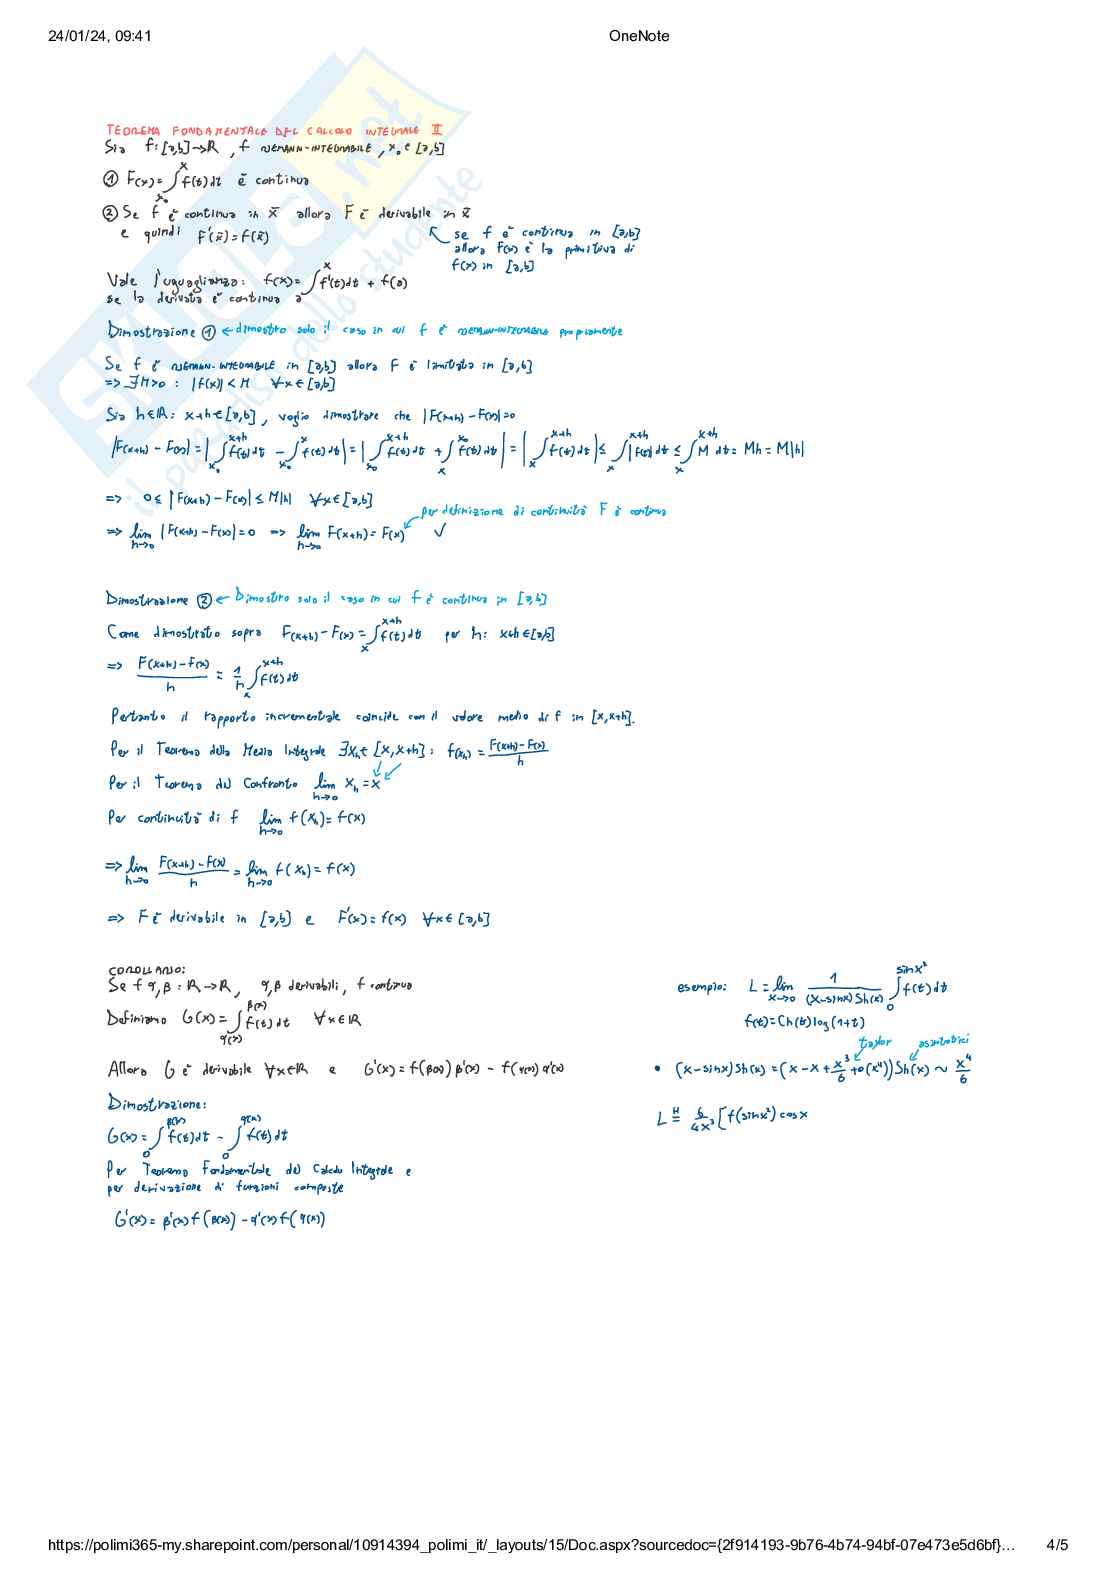 24/01/24, 09:41
OneNote
TEOREMA FONDAMENTALE DEL CALCOLO INTEGRALE II
Sia f: [a,b] → R , f RIEMANN-INTEGRABILE , x₀ ∈ [a,b]
① F(x) = ∫_{x₀}^{x} f(t) dt è continua
② Se f è continua in x̄ allora F è derivabile in x̄
e quindi F'(x̄) = f(x̄)
se f è continua in [a,b]
allora F(x) è la primitiva di
f(x) in [a,b]
Vale l'uguaglianza: f(x) = ∫_{a}^{x} f'(t) dt + f(a)
se la derivata è continua
Dimostrazione ① ← dimostro solo il caso in cui f è RIEMANN-INTEGRABILE propriamente
Se f è RIEMANN-INTEGRABILE in [a,b] allora F è limitata in [a,b]
=> ∃ M>0 : |f(x)| < M ∀x ∈ [a,b]
Sia h ∈ R : x+h ∈ [a,b] , voglio dimostrare che |F(x+h) - F(x)| = 0
|F(x+h) - F(x)| = |∫_{x₀}^{x+h} f(t) dt - ∫_{x₀}^{x} f(t) dt| = |∫_{x₀}^{x+h} f(t) dt + ∫_{x}^{x₀} f(t) dt| = |∫_{x}^{x+h} f(t) dt| ≤ ∫_{x}^{x+h} |f(t)| dt ≤ ∫_{x}^{x+h} M dt = Mh = M|h|
=> 0 ≤ |F(x+h) - F(x)| ≤ M|h| ∀x ∈ [a,b]
per definizione di continuità F è continua
=> lim_{h→0} |F(x+h) - F(x)| = 0 => lim_{h→0} F(x+h) = F(x) ✓
Dimostrazione ② ← Dimostro solo il caso in cui f è continua in [a,b]
Come dimostrato sopra F(x+h) - F(x) = ∫_{x}^{x+h} f(t) dt per h: x+h ∈ [a,b]
=> (F(x+h) - F(x))/h = 1/h ∫_{x}^{x+h} f(t) dt
Pertanto il rapporto incrementale coincide con il valore medio di f in [x,x+h].
Per il Teorema della Media Integrale ∃ x_h ∈ [x, x+h] : f(x_h) = (F(x+h) - F(x))/h
Per il Teorema del Confronto lim_{h→0} x_h = x
Per continuità di f lim_{h→0} f(x_h) = f(x)
=> lim_{h→0} (F(x+h) - F(x))/h = lim_{h→0} f(x_h) = f(x)
=> F è derivabile in [a,b] e F'(x) = f(x) ∀x ∈ [a,b]
COROLLARIO:
Se f α, β : R → R , α, β derivabili, f continua
Definiamo G(x) = ∫_{α(x)}^{β(x)} f(t) dt ∀x ∈ R
Allora G è derivabile ∀x ∈ R e G'(x) = f(β(x)) β'(x) - f(α(x)) α'(x)
Dimostrazione:
G(x) = ∫_{0}^{β(x)} f(t) dt - ∫_{0}^{α(x)} f(t) dt
Per Teorema Fondamentale del Calcolo Integrale e
per derivazione di funzioni composte
G'(x) = β'(x) f(β(x)) - α'(x) f(α(x))
esempio: L = lim_{x→0} 1/((x-sinx) Sh(x)) ∫_{0}^{sin x²} f(t) dt
f(t) = Ch(t) log(1+t)
taylor asintotici
• (x-sinx) Sh(x) = (x - x + x³/6 + o(x⁴)) Sh(x) ~ x⁴/6
L =^H 6/4x³ [f(sinx²) cosx
https://polimi365-my.sharepoint.com/personal/10914394_polimi_it/_layouts/15/Doc.aspx?sourcedoc={2f914193-9b76-4b74-94bf-07e473e5d6bf}...
4/5
SKUOLA.net
il paradiso dello studente